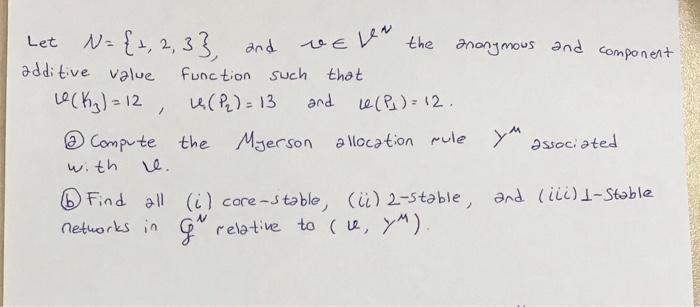 Let N = {1, 2, 3}, and v ∈ V^N the anonymous and component
additive value function such that
v(K₃) = 12, v(P₂) = 13 and v(P₁) = 12.
ⓐ Compute the Myerson allocation rule Y^M associated
with v.
ⓑ Find all (i) core-stable, (ii) 2-stable, and (iii) 1-stable
networks in G^N relative to (v, Y^M).